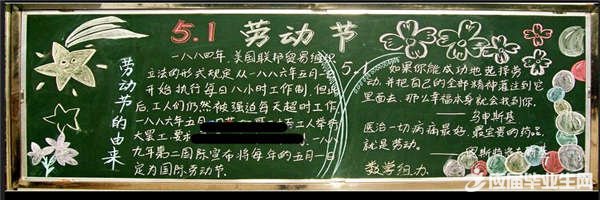 5.1 劳动节
劳动节的由来
一八八四年,美国联邦贸易组织
立法的形式规定从一八八六年五月一
开始执行每日八小时工作制,但此
后,工人们仍然被强迫每天超时工作
一八八六年五月一 工人举行
大罢工,要求 一八八
九年第二国际宣布将每年的五月一日
定为国际劳动节.
5.1
如果你能成功地选择劳
动,并把自己的全部精神灌注到它
里面去,那么幸福本身就会找到你.
——乌申斯基
医治一切病痛最好、最宝贵的药品,
就是劳动.
数学组.办
西届毕业生网